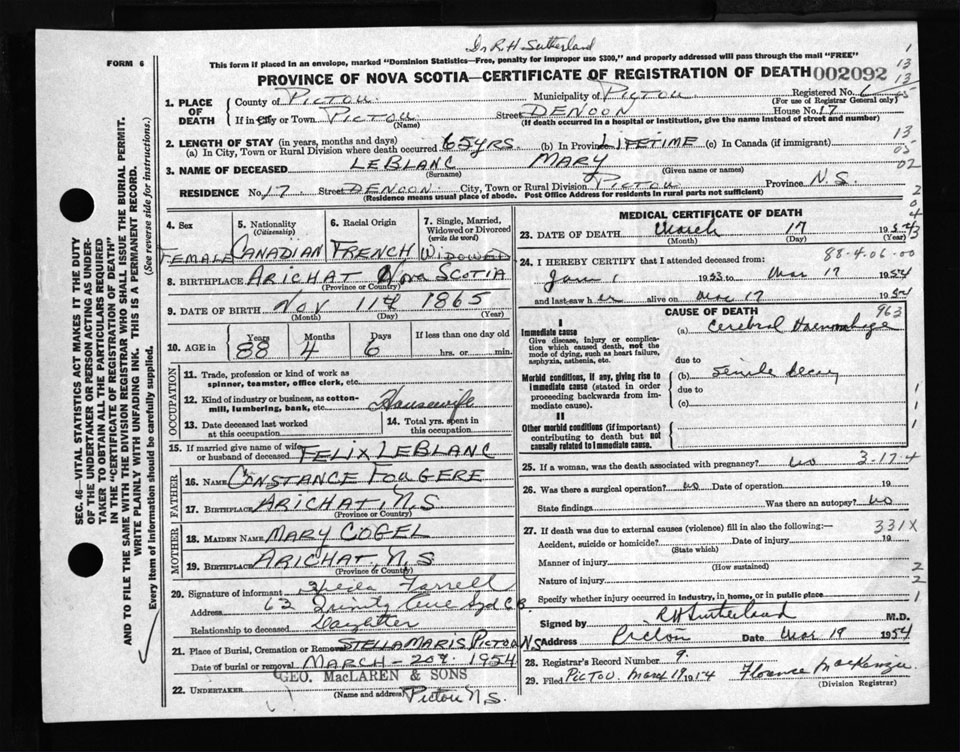 Dr R.H. Sutherland
FORM 6
This form if placed in an envelope, marked "Dominion Statistics—Free, penalty for improper use $300," and properly addressed will pass through the mail "FREE"
PROVINCE OF NOVA SCOTIA—CERTIFICATE OF REGISTRATION OF DEATH 002092
1. PLACE OF DEATH
County of PICTOU Municipality of PICTOU Registered No.
(For use of Registrar General only)
If in City or Town PICTOU Street DENOON House No. 17
(Name) (If death occurred in a hospital or institution, give the name instead of street and number)
2. LENGTH OF STAY (in years, months and days)
(a) In City, Town or Rural Division where death occurred 65 YRS. (b) In Province LIFETIME (c) In Canada (if immigrant)
3. NAME OF DECEASED LEBLANC MARY
(Surname) (Given name or names)
RESIDENCE No. 17 Street DENOON City, Town or Rural Division PICTOU Province N S
(Residence means usual place of abode. Post Office Address for residents in rural parts not sufficient)
4. Sex 5. Nationality (Citizenship) 6. Racial Origin 7. Single, Married, Widowed or Divorced (write the word)
FEMALE CANADIAN FRENCH WIDOWED
8. BIRTHPLACE ARICHAT Nova SCOTIA
(Province or Country)
9. DATE OF BIRTH NOV 11th 1865
(Month) (Day) (Year)
10. AGE in Years Months Days If less than one day old
88 4 6 hrs. or min.
OCCUPATION
11. Trade, profession or kind of work as spinner, teamster, office clerk, etc.
12. Kind of industry or business, as cotton-mill, lumbering, bank, etc. Housewife
13. Date deceased last worked at this occupation
14. Total yrs. spent in this occupation
15. If married give name of wife or husband of deceased FELIX LEBLANC
FATHER
16. NAME CONSTANCE FOUGERE
17. BIRTHPLACE ARICHAT, N S
(Province or Country)
MOTHER
18. MAIDEN NAME MARY COGEL
19. BIRTHPLACE ARICHAT, N, S
(Province or Country)
20. Signature of informant Sheila Farrell
Address 62 Trinity Ave Syd C B
Relationship to deceased Daughter
21. Place of Burial, Cremation or Removal STELLA MARIS PICTOU NS
Date of burial or removal MARCH — 20th 1954
GEO. MacLAREN & SONS
22. UNDERTAKER
(Name and address) Pictou N S.
MEDICAL CERTIFICATE OF DEATH
23. DATE OF DEATH March 17 1954
(Month) (Day) (Year)
88-4-06-00
24. I HEREBY CERTIFY that I attended deceased from:
Jan 1 1953 to Mar 17 1954
and last saw her alive on Mar 17 1954
CAUSE OF DEATH 963
I
Immediate cause
Give disease, injury or complication which caused death, not the mode of dying, such as heart failure, asphyxia, asthenia, etc.
(a) Cerebral Haemorrhage
due to
Morbid conditions, if any, giving rise to immediate cause (stated in order proceeding backwards from immediate cause).
(b) Senile decay
due to
(c)
II
Other morbid conditions (if important) contributing to death but not causally related to immediate cause.
25. If a woman, was the death associated with pregnancy? no 3-17-4
26. Was there a surgical operation? no Date of operation 19
State findings Was there an autopsy? no
27. If death was due to external causes (violence) fill in also the following:— 331X
Accident, suicide or homicide? Date of injury 19
(State which)
Manner of injury
(How sustained)
Nature of injury
Specify whether injury occurred in industry, in home, or in public place
Signed by RH Sutherland M.D.
Address Pictou Date Mar 19 1954
28. Registrar's Record Number 9.
29. Filed PICTOU March 19 1954 Florence MacKenzie
(Division Registrar)
SEC. 46—VITAL STATISTICS ACT MAKES IT THE DUTY
OF THE UNDERTAKER OR PERSON ACTING AS UNDER-
TAKER TO OBTAIN ALL THE PARTICULARS REQUIRED
IN THE "CERTIFICATE OF REGISTRATION OF DEATH"
AND TO FILE THE SAME WITH THE DIVISION REGISTRAR WHO SHALL ISSUE THE BURIAL PERMIT.
WRITE PLAINLY WITH UNFADING INK. THIS IS A PERMANENT RECORD.
Every item of information should be carefully supplied. (See reverse side for instructions.)